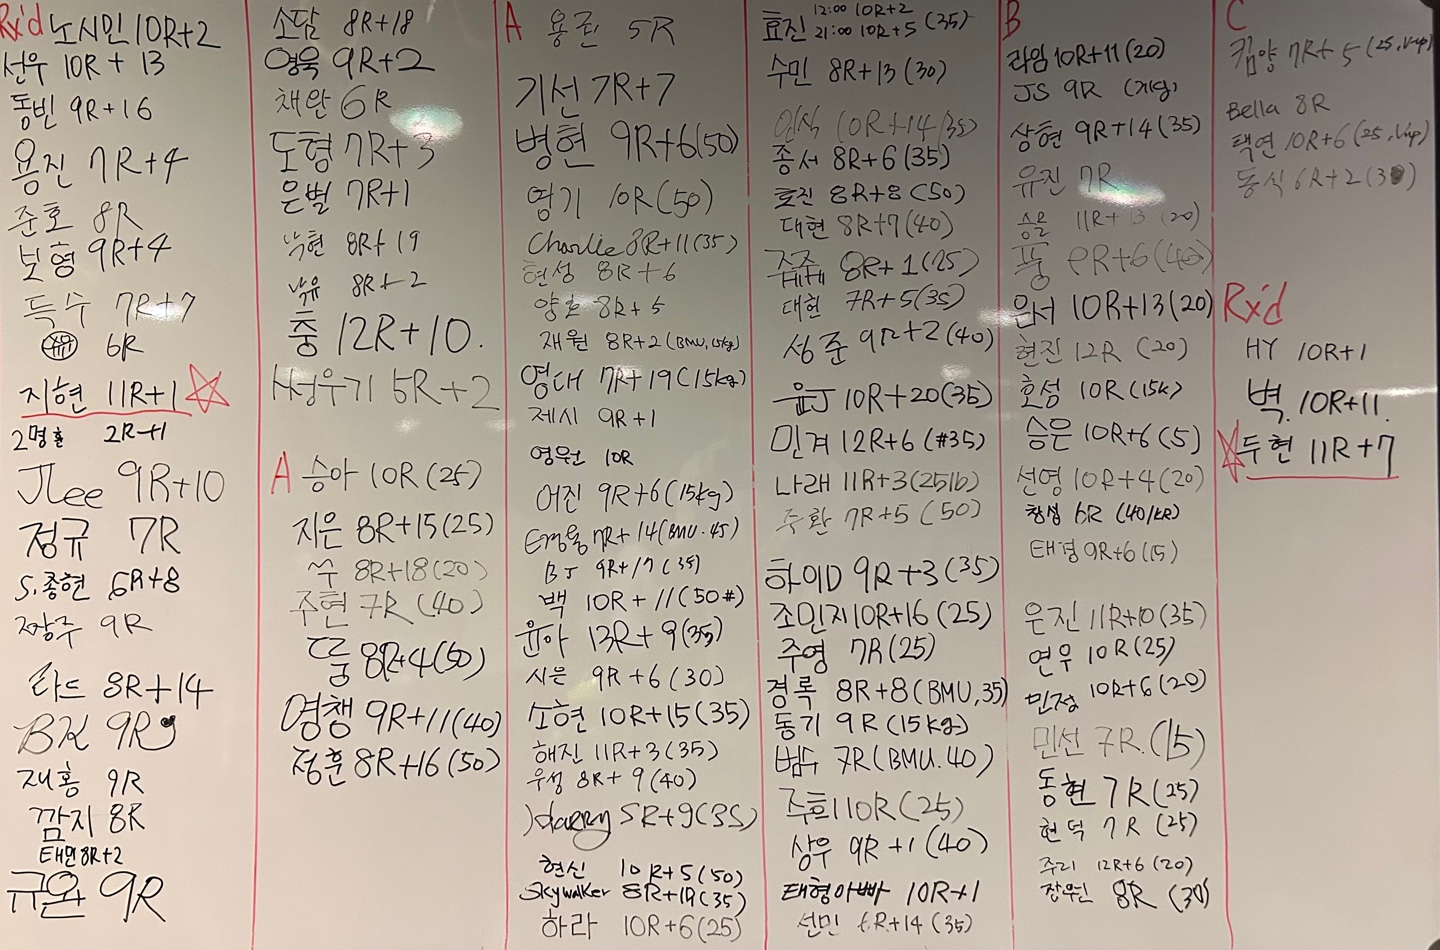 Rx'd 노시민 10R+2
선우 10R + 13
동빈 9R+16
용진 7R+4
준호 8R
보형 9R+4
득수 7R+7
6R
지현 11R+1
2명훈 2R+1
JLee 9R+10
정규 7R
S.종현 6R+8
짱주 9R
라드 8R+14
BK 9R
재홍 9R
깜지 8R
태민 8R+2
규완 9R
소담 8R+18
영욱 9R+2
채완 6R
도형 7R+3
은별 7R+1
낙현 8R+19
낙유 8R+2
충 12R+10.
5R+2
A 승아 10R (25)
지은 8R+15(25)
쑤 8R+18(20)
주현 7R (40)
뚬 8R+4(50)
명챙 9R+11(40)
정훈 8R+16(50)
A 용환 5R
기선 7R+7
병현 9R+6(50)
영기 10R(50)
Charlie 8R+11(35)
현성 8R+6
양호 8R+5
재원 8R+2(BMU,15kg)
영대 7R+19(15kg)
제시 9R+1
영원 10R
어진 9R+6(15kg)
7R+14(BMU.45)
BJ 9R+17(35)
백 10R+11(50#)
윤아 13R+9(35)
시은 9R+6(30)
소현 10R+15(35)
해진 11R+3(35)
우성 8R+9(40)
Harry 5R+9(35)
현신 10R+5(50)
Skywalker 8R+19(35)
하라 10R+6(25)
12:00 10R+2
효진 21:00 10R+5(35)
수민 8R+13(30)
인식 10R+14(35)
종서 8R+6(35)
효진 8R+8(50)
대현 8R+7(40)
쥬쥬 8R+1(25)
대현 7R+5(35)
성준 9R+2(40)
윤J 10R+20(35)
민겨 12R+6(#35)
나래 11R+3(25lb)
주환 7R+5(50)
하이D 9R+3(35)
조민지 10R+16(25)
주영 7R(25)
경록 8R+8(BMU,35)
동기 9R(15kg)
범수 7R(BMU.40)
주희 10R(25)
상우 9R+1(40)
태형아빠 10R+1
선민 6R+14(35)
B
라임 10R+11(20)
JS 9R
상현 9R+14(35)
유진 7R
승은 11R+13(20)
풍 9R+6(40)
은서 10R+13(20)
현진 12R (20)
호섬 10R(15k)
승은 10R+6(5)
선영 10R+4(20)
창섭 6R
태경 9R+6(15)
은진 11R+10(35)
연우 10R(25)
민정 10R+6(20)
민선 7R.(15)
동현 7R(25)
현덕 7R (25)
주리 12R+6(20)
장원 8R (30)
C
김양 7R+5(25,V-up)
Bella 8R
택연 10R+6(25,V-up)
동식 6R+2(30)
Rx'd
HY 10R+1
벽. 10R+11.
두현 11R+7